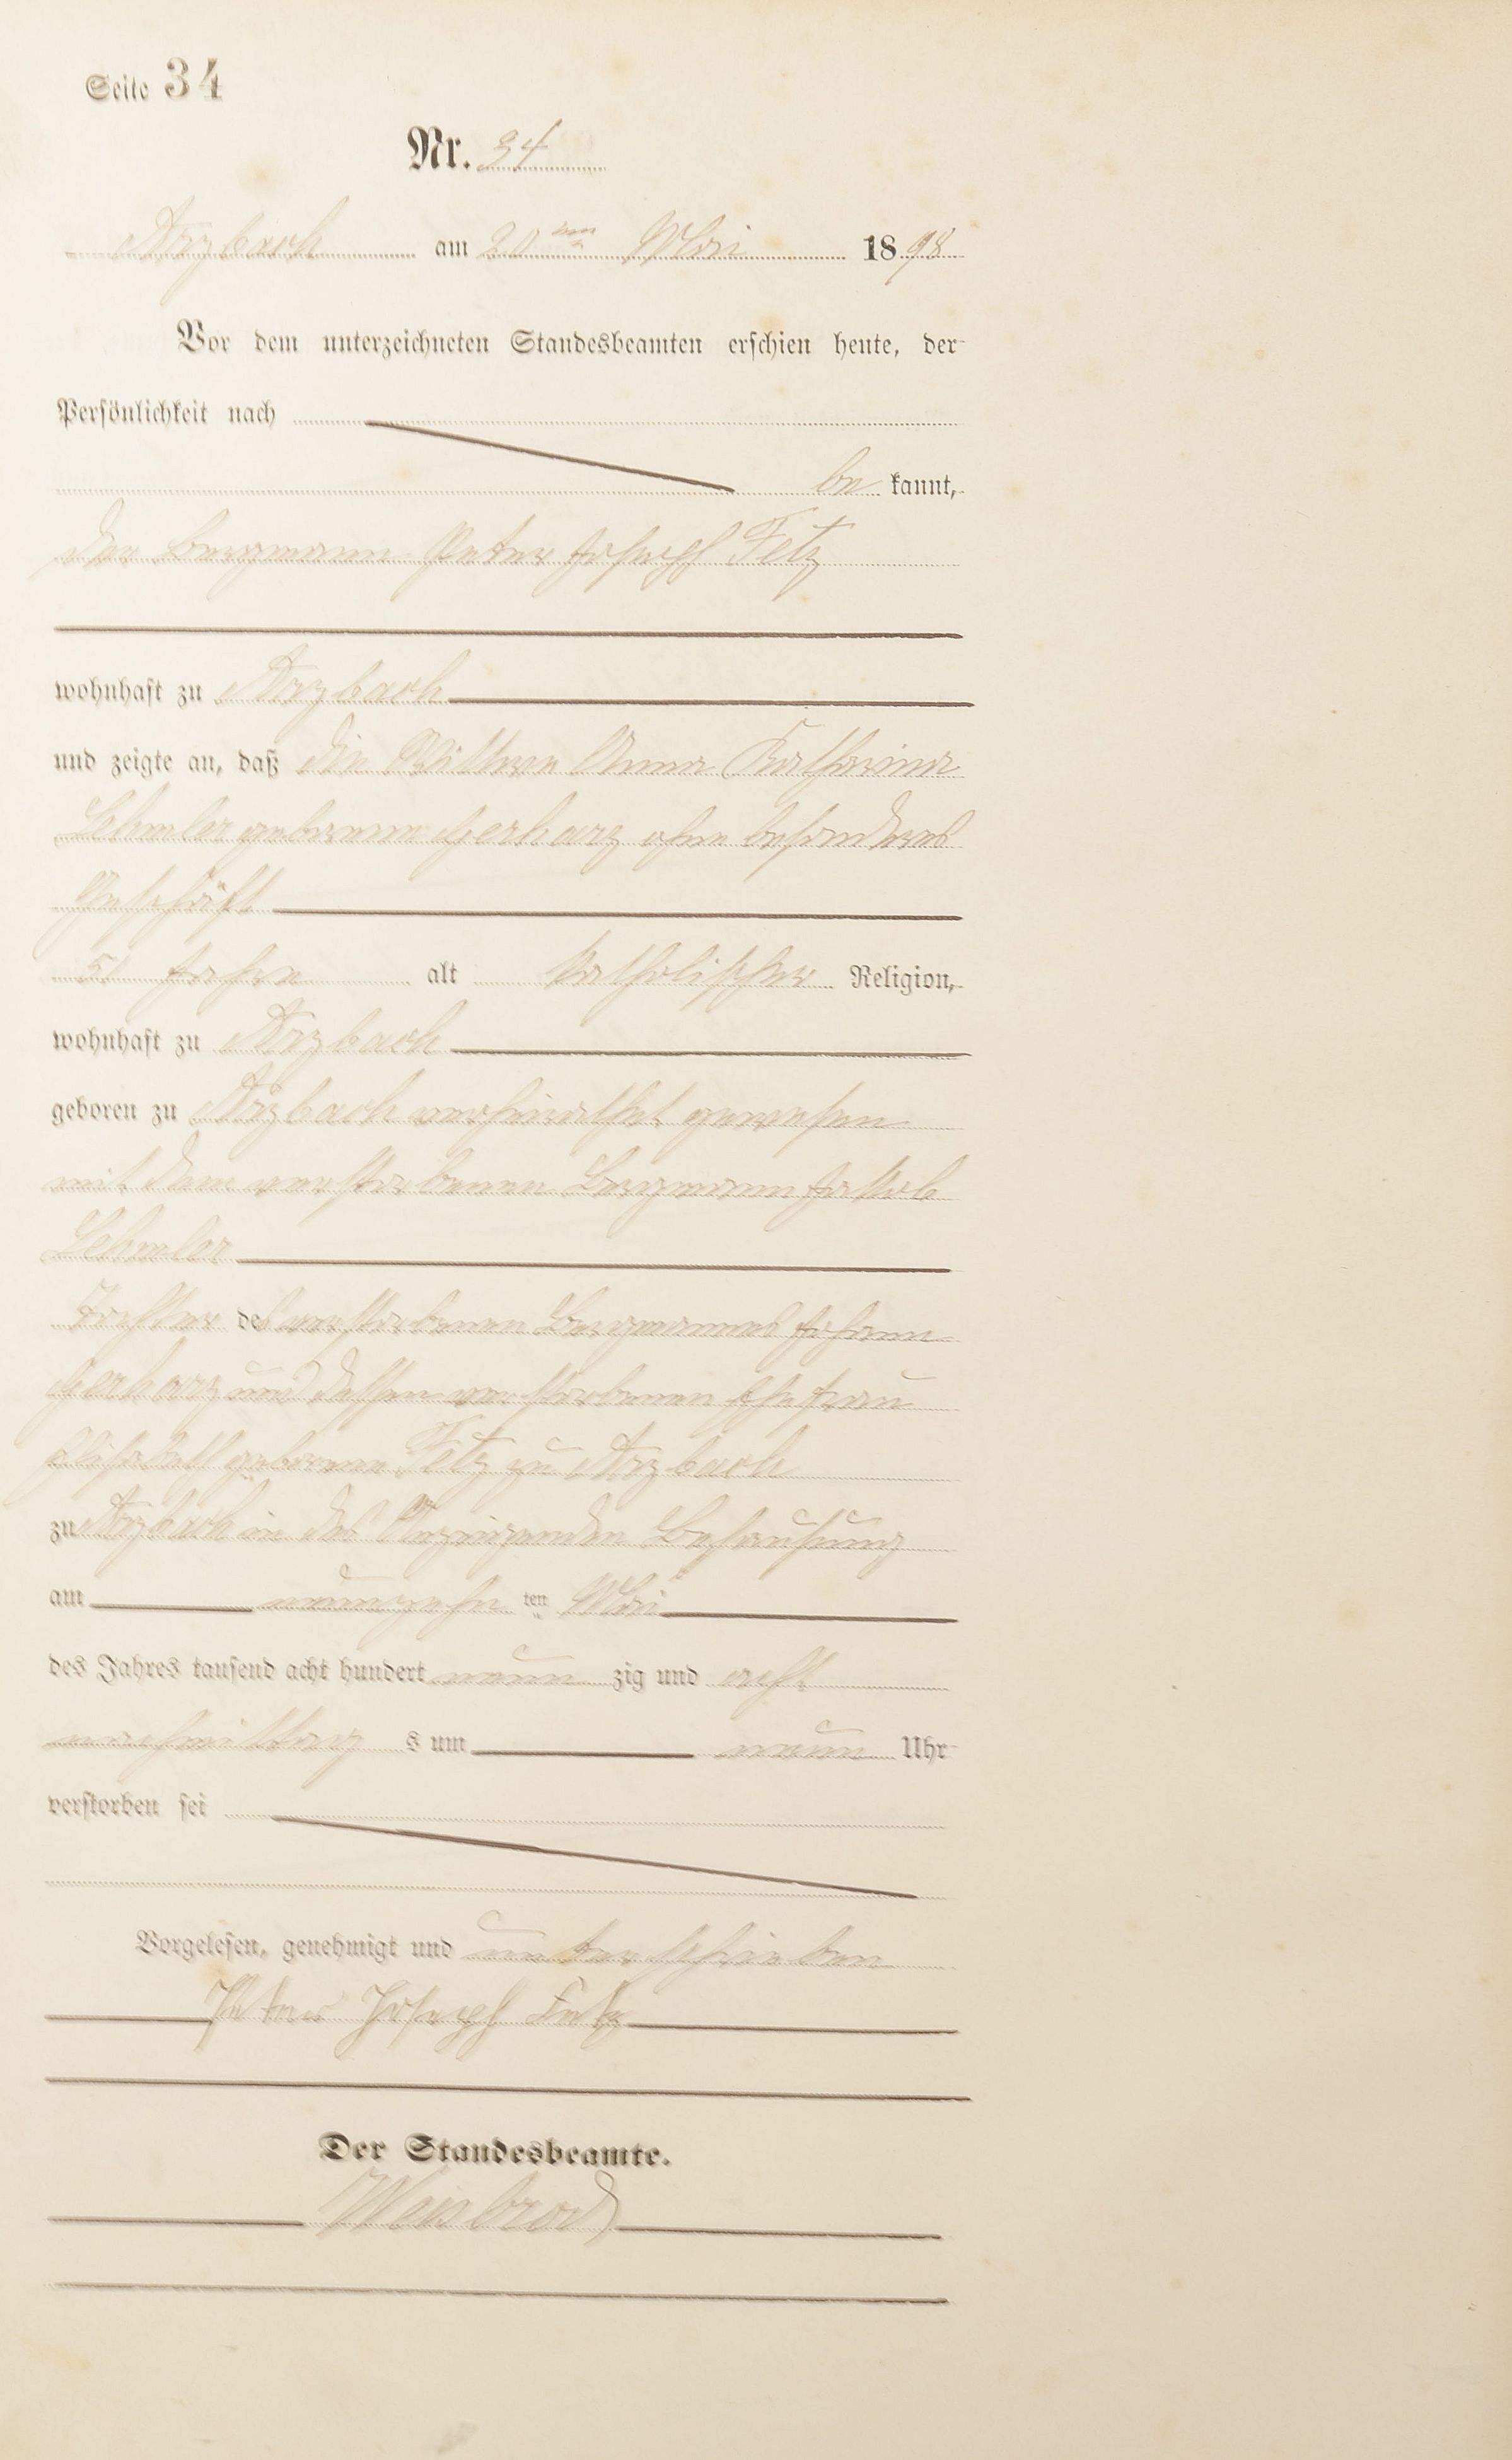 Seite 34
Nr. 34
Arzbach am 20ten Mai 1898
Vor dem unterzeichneten Standesbeamten erschien heute, der
Persönlichkeit nach
be kannt,
der Bergmann Peter Joseph Fetz
wohnhaft zu Arzbach
und zeigte an, daß die Wittwe Anna Katharina
Lehmler geborene Gerharz ohne besonderes
Geschäft
51 Jahre alt katholischer Religion,
wohnhaft zu Arzbach
geboren zu Arzbach verheirathet gewesen
mit dem verstorbenen Bergmann Jakob
Lehmler
Tochter des verstorbenen Bergmannes Johann
Gerharz und dessen verstorbenen Ehefrau
Elisabeth geborene Fetz zu Arzbach
zu Arzbach in des Anzeigenden Behausung
am neunzehn ten Mai
des Jahres tausend acht hundert neun zig und acht
nachmittag s um neun Uhr
verstorben sei
Vorgelesen, genehmigt und unterschrieben
Peter Joseph Fetz
Der Standesbeamte.
Weisbrod